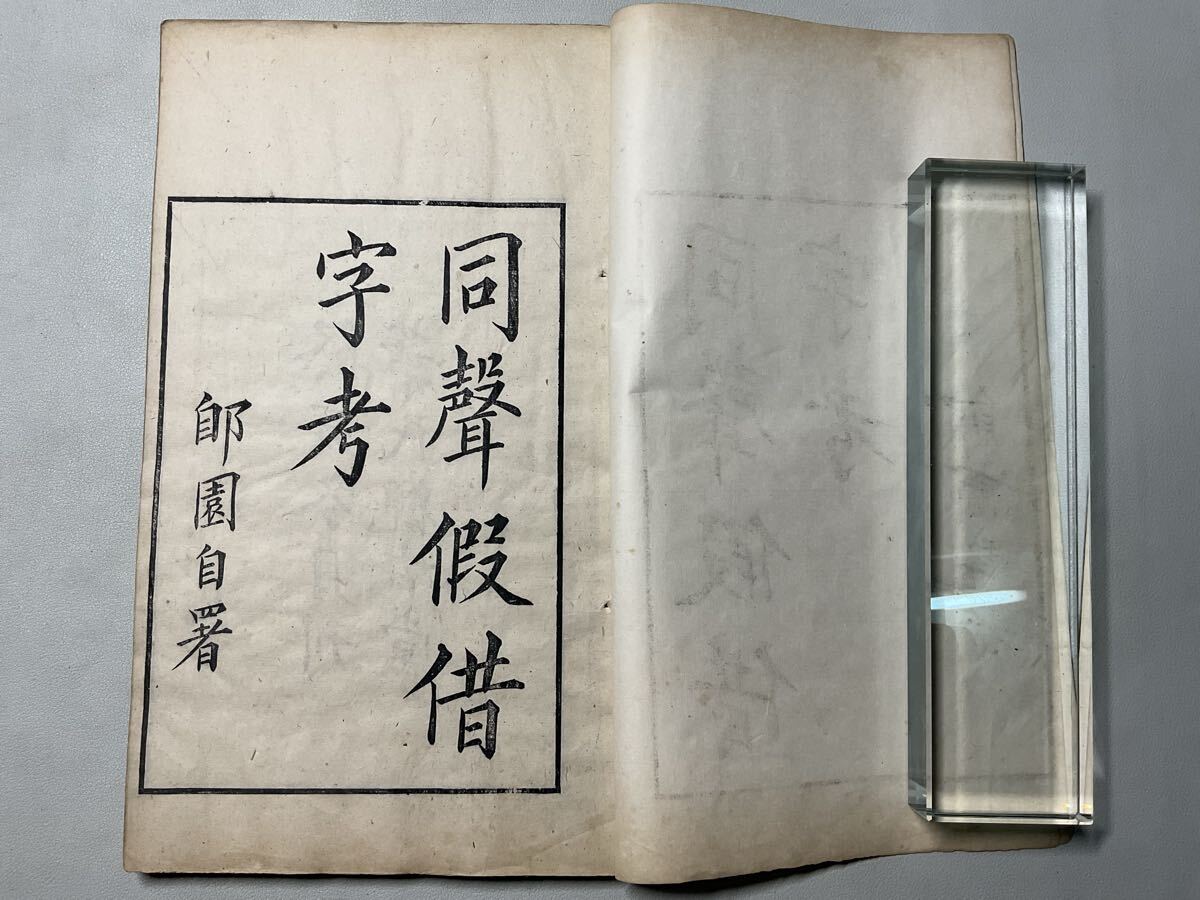 同聲假借
字考
郋園自署